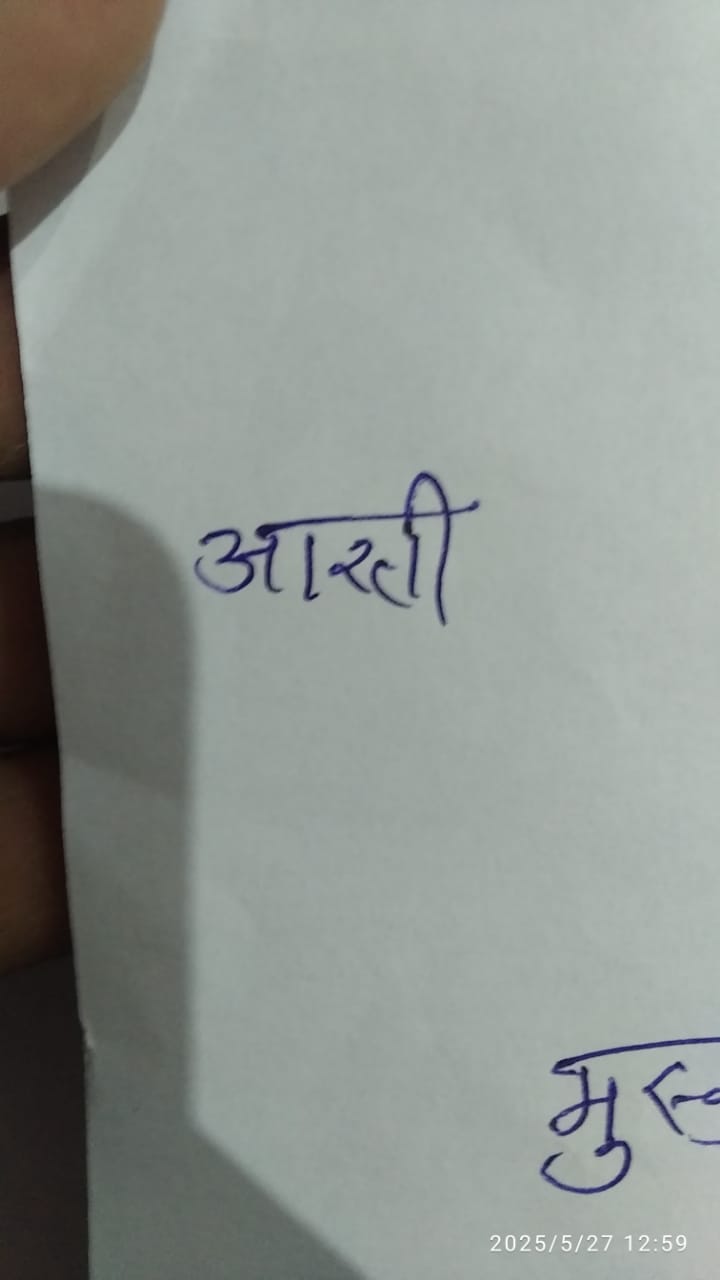 आरती
2025/5/27 12:59